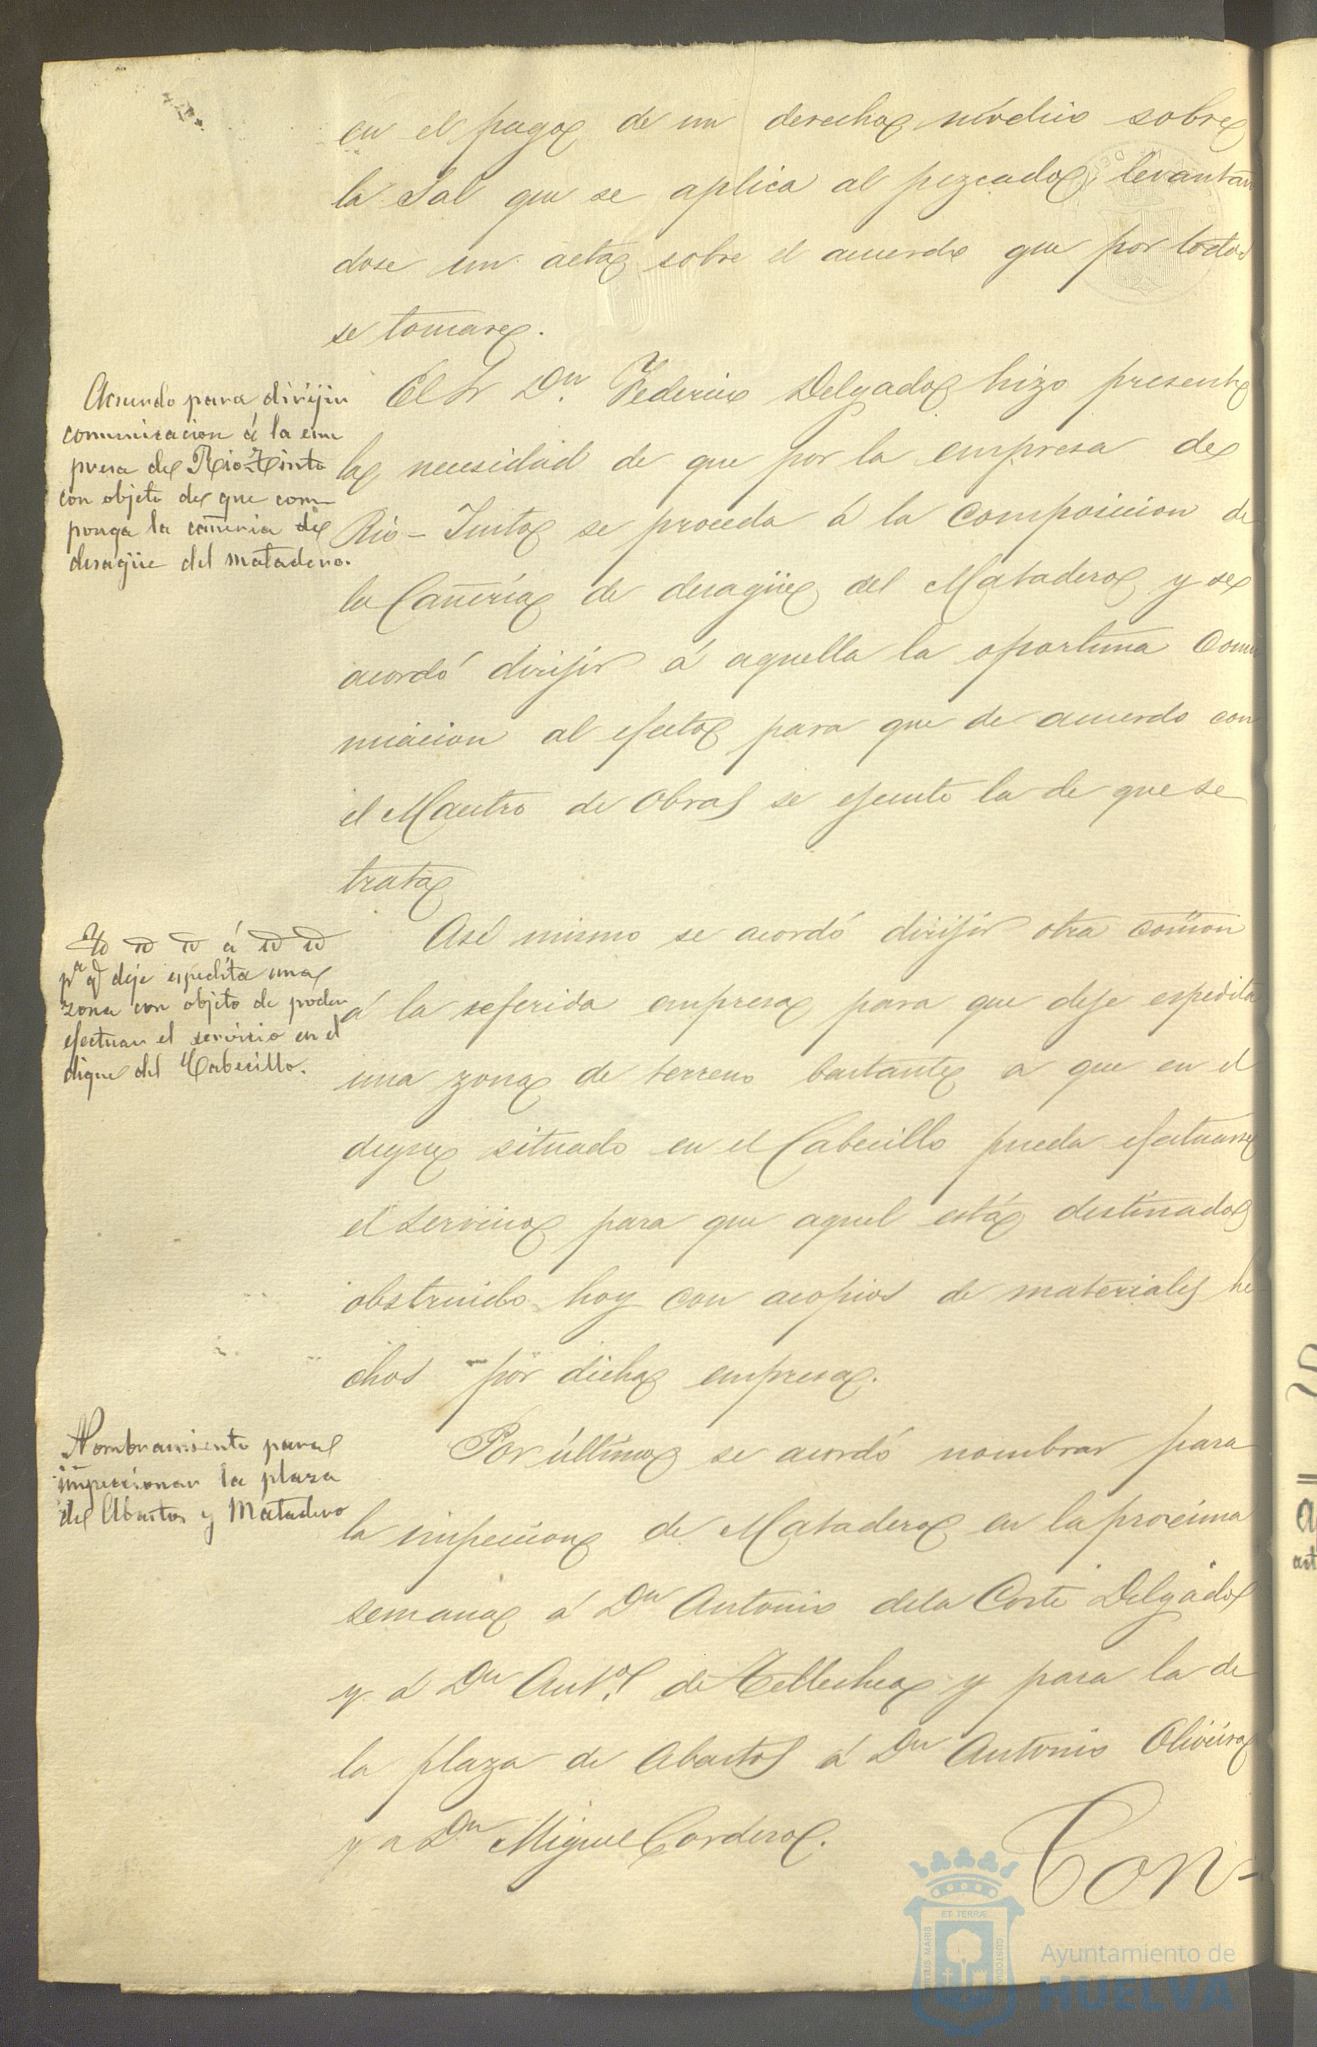 en el pago de un derecho módico sobre
la Sal que se aplica al pezcado, levantan
dose un acta sobre el acuerdo que por todos
se tomare.
Acuerdo para dirijir
comunicacion á la em
presa de Rio-Tinto
con objeto de que com-
ponga la cañeria de
desagüe del matadero.
El Sr Dn. Federico Delgado hizo presente
la necesidad de que por la empresa de
Rio-Tinto se proceda á la composicion de
la Cañería de desagüe del Matadero y se
acordó dirijir á aquella la oportuna comu
nicacion al efecto para que de acuerdo con
el Maestro de Obras se ejecute la de que se
trata
Yd id id á id id
pa q deje espedita una
zona con objeto de poder
efectuar el servicio en el
dique del Cabecillo.
Asi mismo se acordó dirijir otra comon
á la referida empresa para que deje espedita
una zona de terreno bastante a que en el
dique situado en el Cabecillo pueda efectuarse
el servicio para que aquel está destinado
obstruido hoy con acopios de materiales he
chos por dicha empresa.
Nombramiento para
inspeccionar la plaza
de Abastos y Matadero
Por último se acordó nombrar para
la inspeccion de Matadero en la procsima
semana á Dn Antonio de la Corte Delgado
y á Dn Anto. de Tellechea y para la de
la plaza de Abastos á Dn Antonio Oliveira
y a Dn Miguel Cordero.
Con-
ET TERRÆ
PORTUS MARIS
CUSTODIA
Ayuntamiento de
HUELVA